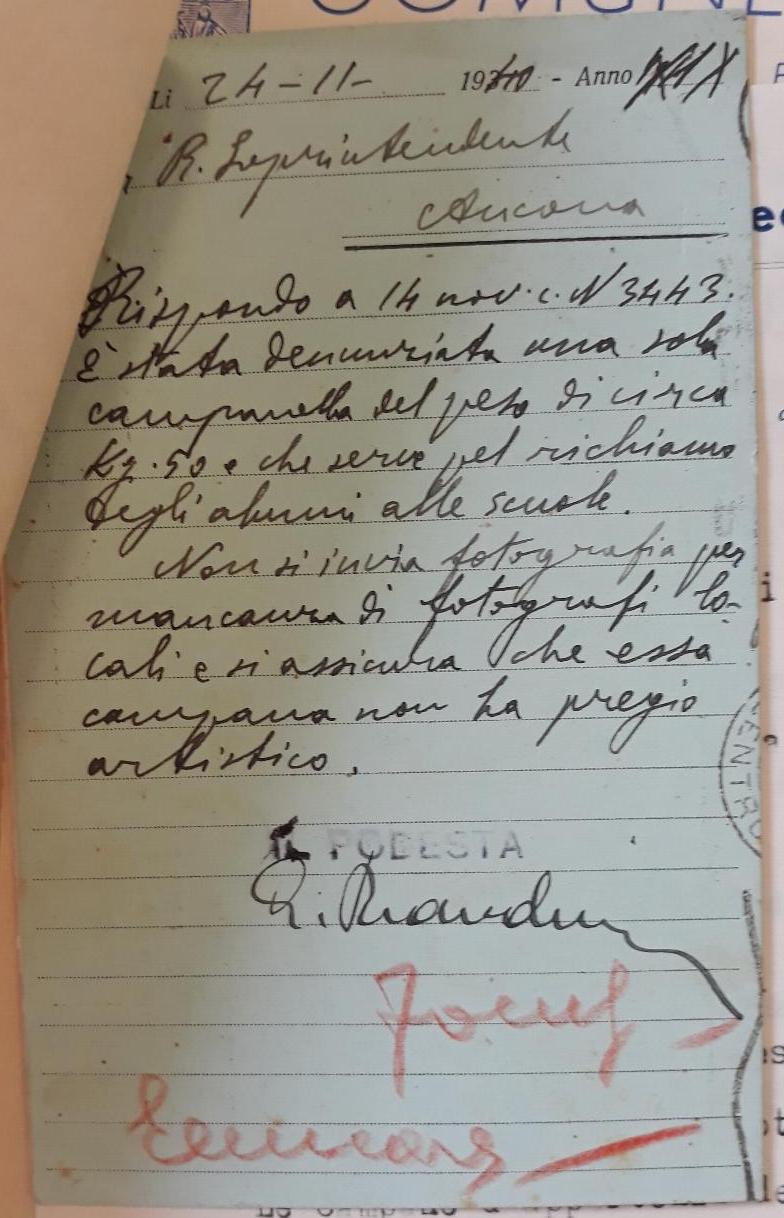 COMUNE
Li 24-11- 1940 - Anno XIX
R. Soprintendente
Ancona
Rispondo a 14 nov. c. N 3443.
È stata denunziata una sola
campanella del peso di circa
Kg. 50 e che serve pel richiamo
degli alunni alle scuole.
Non si invia fotografia per
mancanza di fotografi lo-
cali e si assicura che essa
campana non ha pregio
artistico.
IL PODESTA